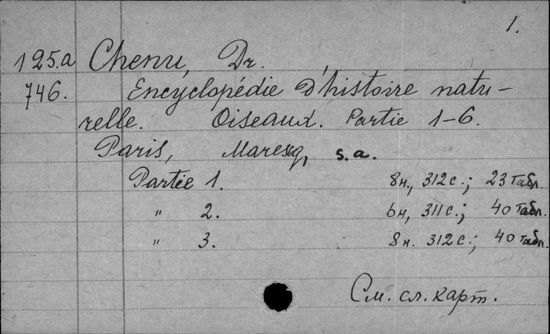 1.
125.a Chenu, Dr.
746. Encyclopédie d'histoire natu-
relle. Oiseaux. Partie 1-6.
Paris, Maresq, s.a.
Partie 1. 8н, 312 с.; 23 табл.
" 2. 6н, 311 с.; 40 табл.
" 3. 8н. 312 с.; 40 табл.
См. сл. карт.